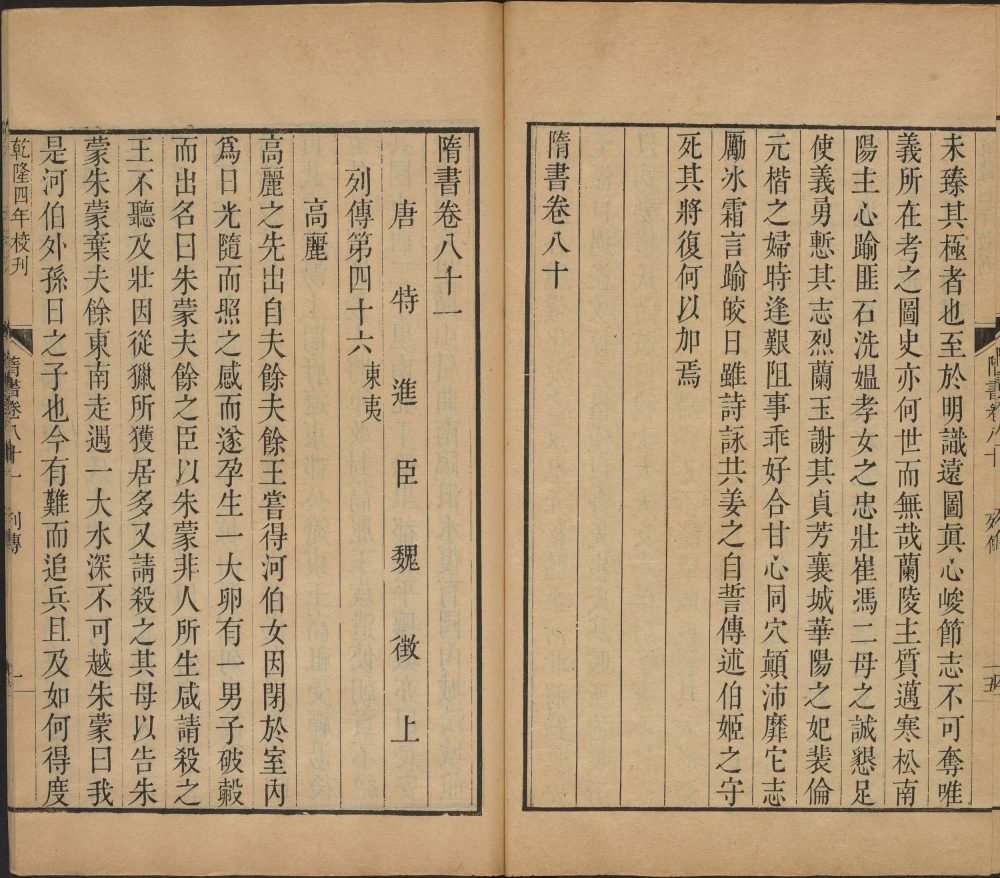 未臻其極者也至於明識遠圖眞心峻節志不可奪唯
義所在考之圖史亦何世而無哉蘭陵主質邁寒松南
陽主心踰匪石洗媼孝女之忠壯崔馮二母之誠懇足
使義勇慙其志烈蘭玉謝其貞芳襄城華陽之妃裴倫
元楷之婦時逢艱阻事乖好合甘心同穴顛沛靡它志
勵冰霜言踰皎日雖詩詠共姜之自誓傳述伯姬之守
死其將復何以加焉
隋書卷八十
隋書卷八十一
唐特進臣魏徵上
列傳第四十六 東夷
高麗
高麗之先出自夫餘夫餘王嘗得河伯女因閉於室內
爲日光隨而照之感而遂孕生一大卵有一男子破䝞
而出名曰朱蒙夫餘之臣以朱蒙非人所生咸請殺之
王不聽及壯因從獵所獲居多又請殺之其母以告朱
蒙朱蒙棄夫餘東南走遇一大水深不可越朱蒙曰我
是河伯外孫日之子也今有難而追兵且及如何得度
乾隆四年校刊
隋書卷八十一 列傳
一